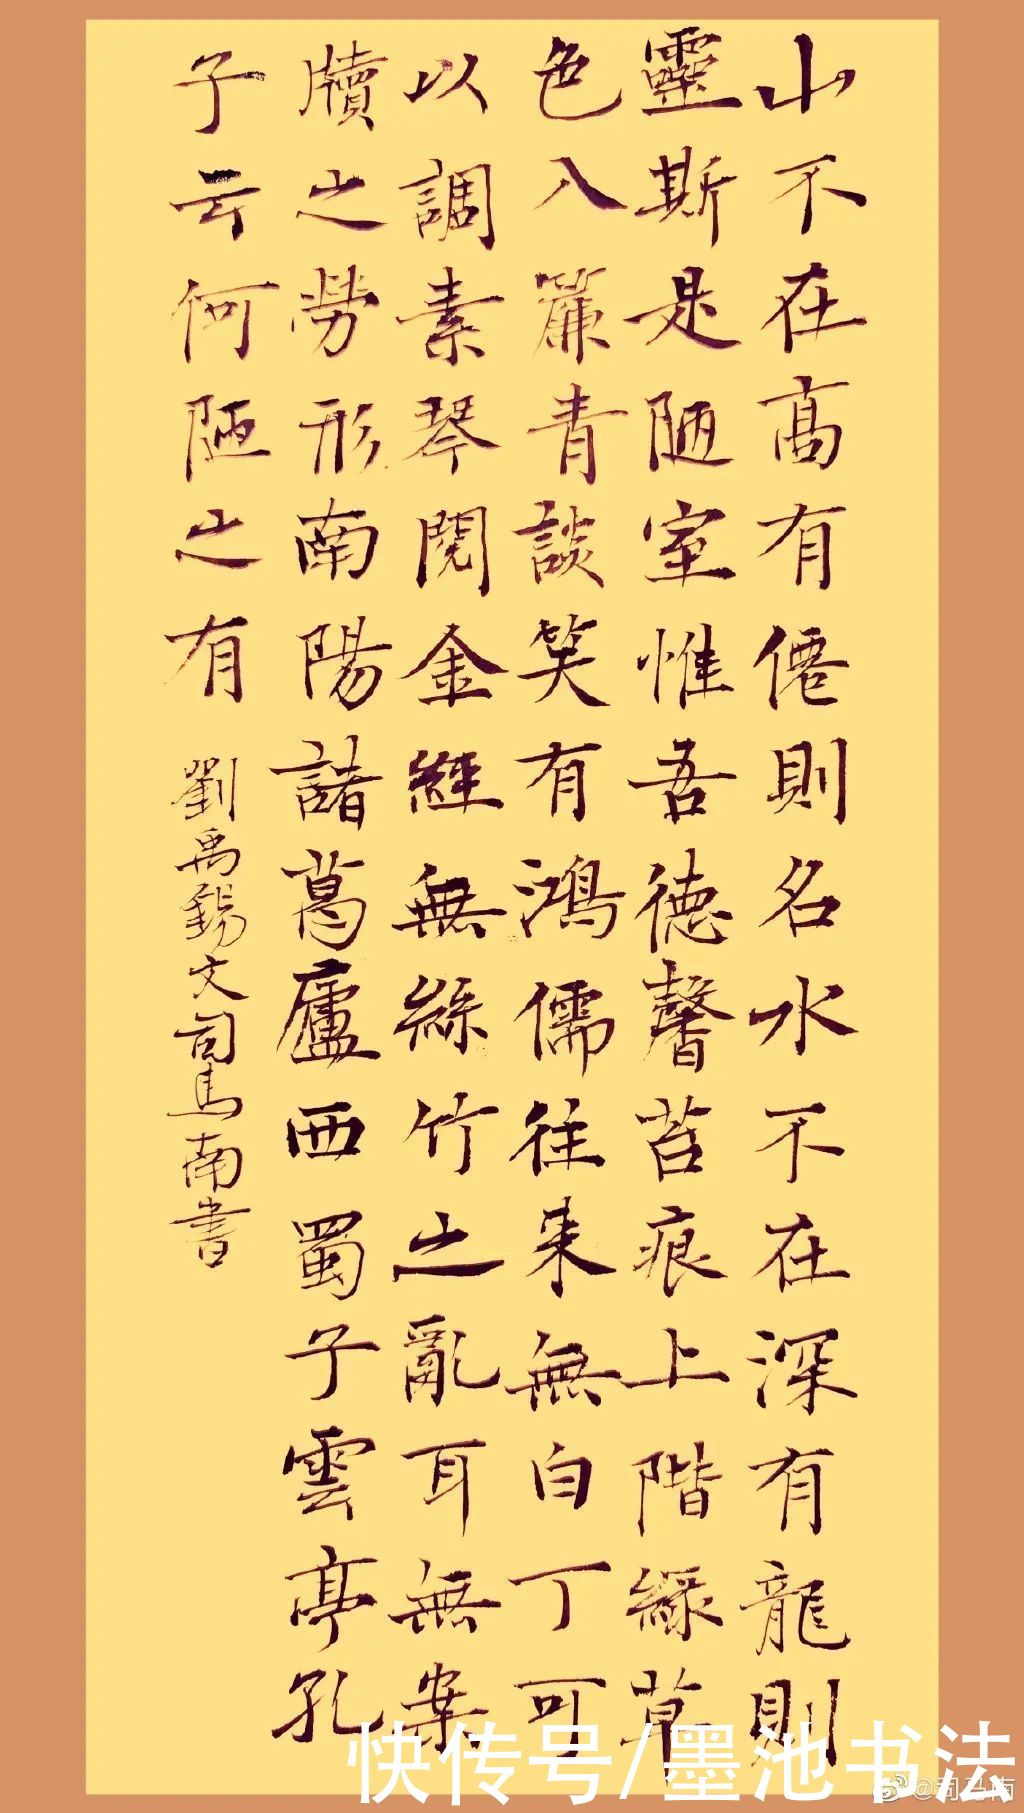 山不在高有僊則名水不在深有龍則
靈斯是陋室惟吾德馨苔痕上階綠草
色入簾青談笑有鴻儒往来無白丁可
以調素琴閱金經無絲竹之亂耳無案
牘之勞形南陽諸葛廬西蜀子雲亭孔
子云何陋之有
劉禹錫文司馬南書
快传号/墨池书法
@司马南